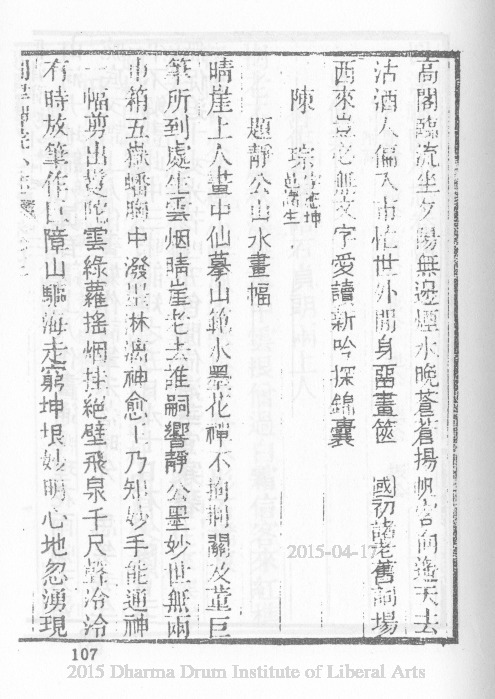 高閣臨流坐夕陽無邊煙水晚蒼蒼揚帆客向遙天去
沽酒人偏入市忙世外閒身留畫篋　國初諸老舊詞場
西來豈必無文字愛讀新吟探錦囊
陳　琮
題靜公山水畫幅
晴崖上人畫中仙摹山範水墨花禪不拘荆關及董巨
筆所到處生雲烟晴崖老去誰嗣響靜公墨妙世無兩
巾箱五嶽蟠胸中潑墨淋漓神愈王乃知妙手能通神
一幅剪出陀雲綠蘿搖烟挂絕壁飛泉千尺聲泠泠
有時放筆作巨障山驅海走窮坤垠妙明心地忽湧現
107
2015-04-17
2015 Dharma Drum Institute of Liberal Arts